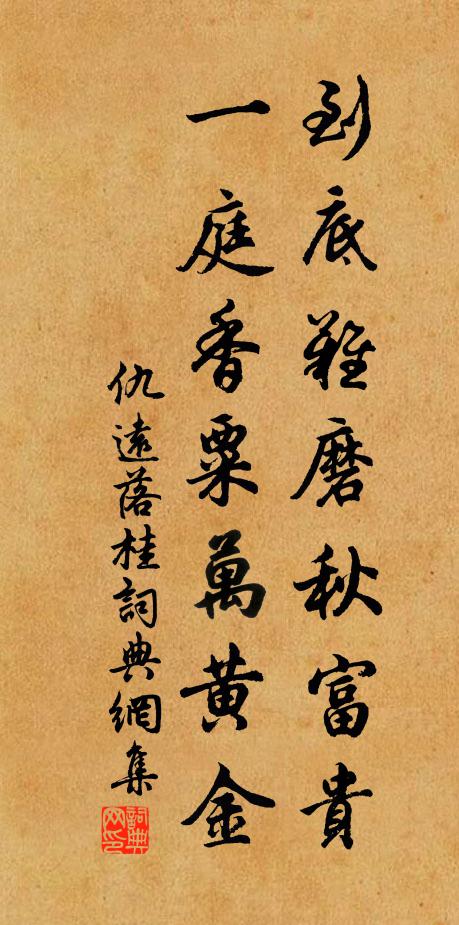 到底難磨秋富貴
一庭香粟萬黃金
仇遠落桂詞典網集
詞典网印